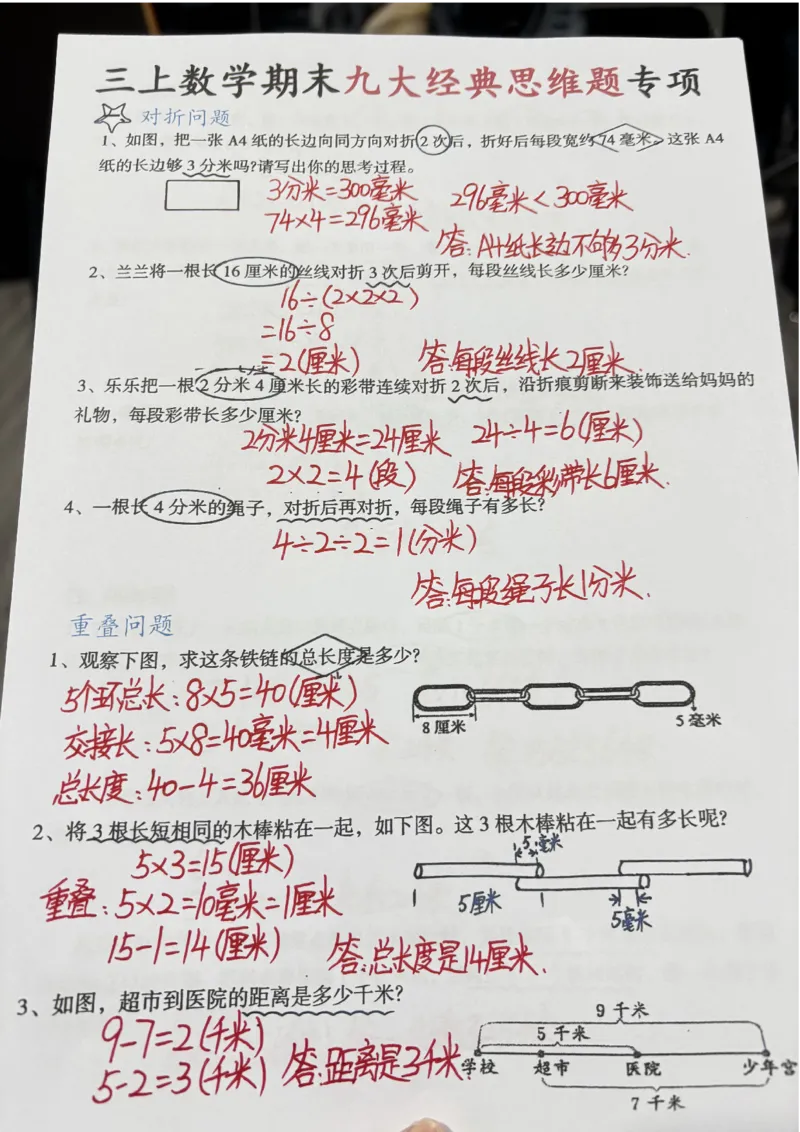 三上数学期末九大经典思维题专项
对折问题
1、如图，把一张 A4 纸的长边向同方向对折 2 次后，折好后每段宽约 74 毫米。这张 A4
纸的长边够 3 分米吗?请写出你的思考过程。
3分米=300毫米 296毫米<300毫米
74×4=296毫米
答:A4纸长边不够3分米.
2、兰兰将一根长 16 厘米的丝线对折 3 次后剪开，每段丝线长多少厘米?
16÷(2×2×2)
=16÷8
=2(厘米) 答:每段丝线长2厘米.
3、乐乐把一根 2 分米 4 厘米长的彩带连续对折 2 次后，沿折痕剪断来装饰送给妈妈的
礼物，每段彩带长多少厘米?
2分米4厘米=24厘米 24÷4=6(厘米)
2×2=4(段) 答:每段彩带长6厘米.
4、一根长 4 分米的绳子，对折后再对折，每段绳子有多长?
4÷2÷2=1(分米)
答:每段绳子长1分米.
重叠问题
1、观察下图，求这条铁链的总长度是多少?
5个环总长:8×5=40(厘米)
8厘米 5毫米
交接长:5×8=40毫米=4厘米
总长度:40-4=36厘米
2、将 3 根长短相同的木棒粘在一起，如下图。这 3 根木棒粘在一起有多长呢?
5毫米
5×3=15(厘米)
重叠:5×2=10毫米=1厘米
5厘米 5毫米
15-1=14(厘米) 答:总长度是14厘米.
3、如图，超市到医院的距离是多少千米?
9 千米
9-7=2(千米)
5 千米
5-2=3(千米) 答:距离是3千米.
学校 超市 医院 少年宫
7 千米